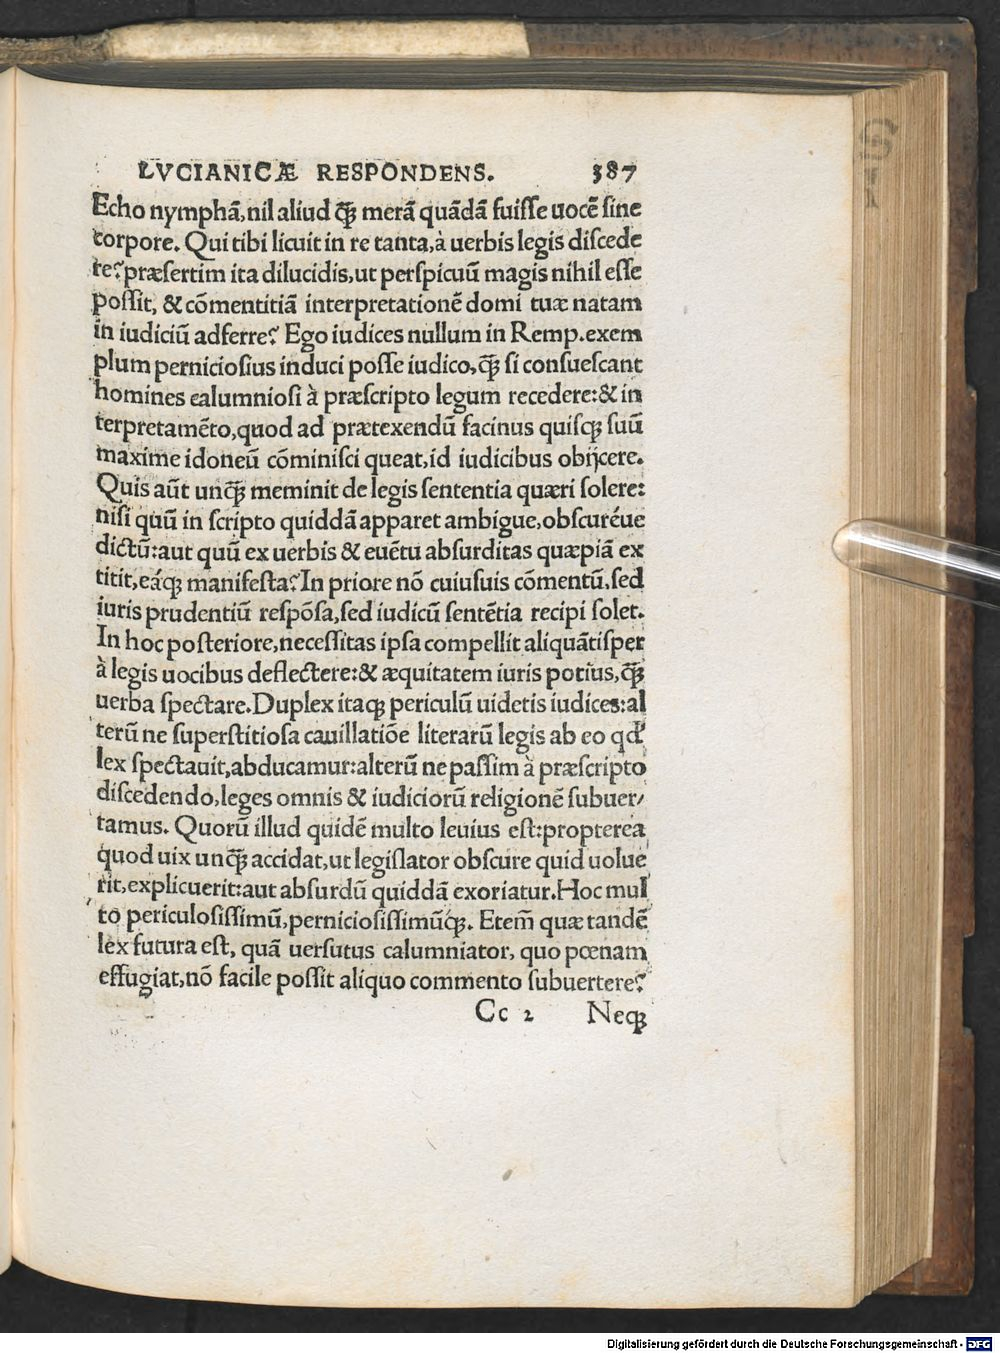 LVCIANICÆ RESPONDENS. 387
Echo nymphā, nil aliud q̄ꝫ merā quādā fuisse uocē sine
corpore. Qui tibi licuit in re tanta, à uerbis legis discede
re? præsertim ita dilucidis, ut perspicuū magis nihil esse
possit, & cōmentitiā interpretationē domi tuæ natam
in iudiciū adferre? Ego iudices nullum in Remp. exem
plum perniciosius induci posse iudico, q̄ꝫ si consuescant
homines calumniosi à præscripto legum recedere: & in
terpretamēto, quod ad prætexendū facinus quisqꝫ suū
maxime idoneū cōminisci queat, id iudicibus obijcere.
Quis aūt unq̄ꝫ meminit de legis sententia quæri solere:
nisi quū in scripto quiddā apparet ambigue, obscuréue
dictū: aut quū ex uerbis & euētu absurditas quæpiā ex
titit, eáqꝫ manifesta? In priore nō cuiusuis cōmentū, sed
iuris prudentiū respōsa, sed iudicū sentētia recipi solet.
In hoc posteriore, necessitas ipsa compellit aliquātisper
à legis uocibus deflectere: & æquitatem iuris potius, q̄ꝫ
uerba spectare. Duplex itaqꝫ periculū uidetis iudices: al
terū ne superstitiosa cauillatiōe literarū legis ab eo qd'
lex spectauit, abducamur: alterū ne passim à præscripto
discedendo, leges omnis & iudiciorū religionē subuer/
tamus. Quorū illud quidē multo leuius est: propterea
quod uix unq̄ꝫ accidat, ut legislator obscure quid uolue
rit, explicuerit: aut absurdū quiddā exoriatur. Hoc mul
to periculosissimū, perniciosissimūqꝫ. Etem̄ quæ tandē
lex futura est, quā uersutus calumniator, quo pœnam
effugiat, nō facile possit aliquo commento subuertere?
Cc 2 Neqꝫ
Digitalisierung gefördert durch die Deutsche Forschungsgemeinschaft - DFG